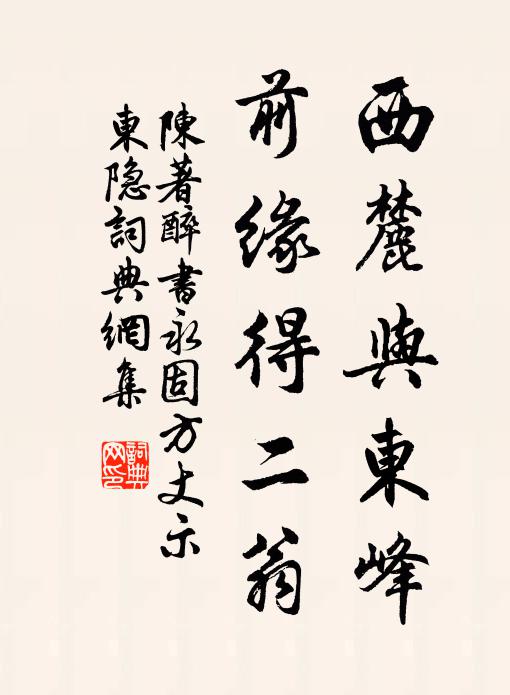 西麓與東峰
前緣得二翁
陳著醉書永固方丈示
東隐詞典網集
詞典网印